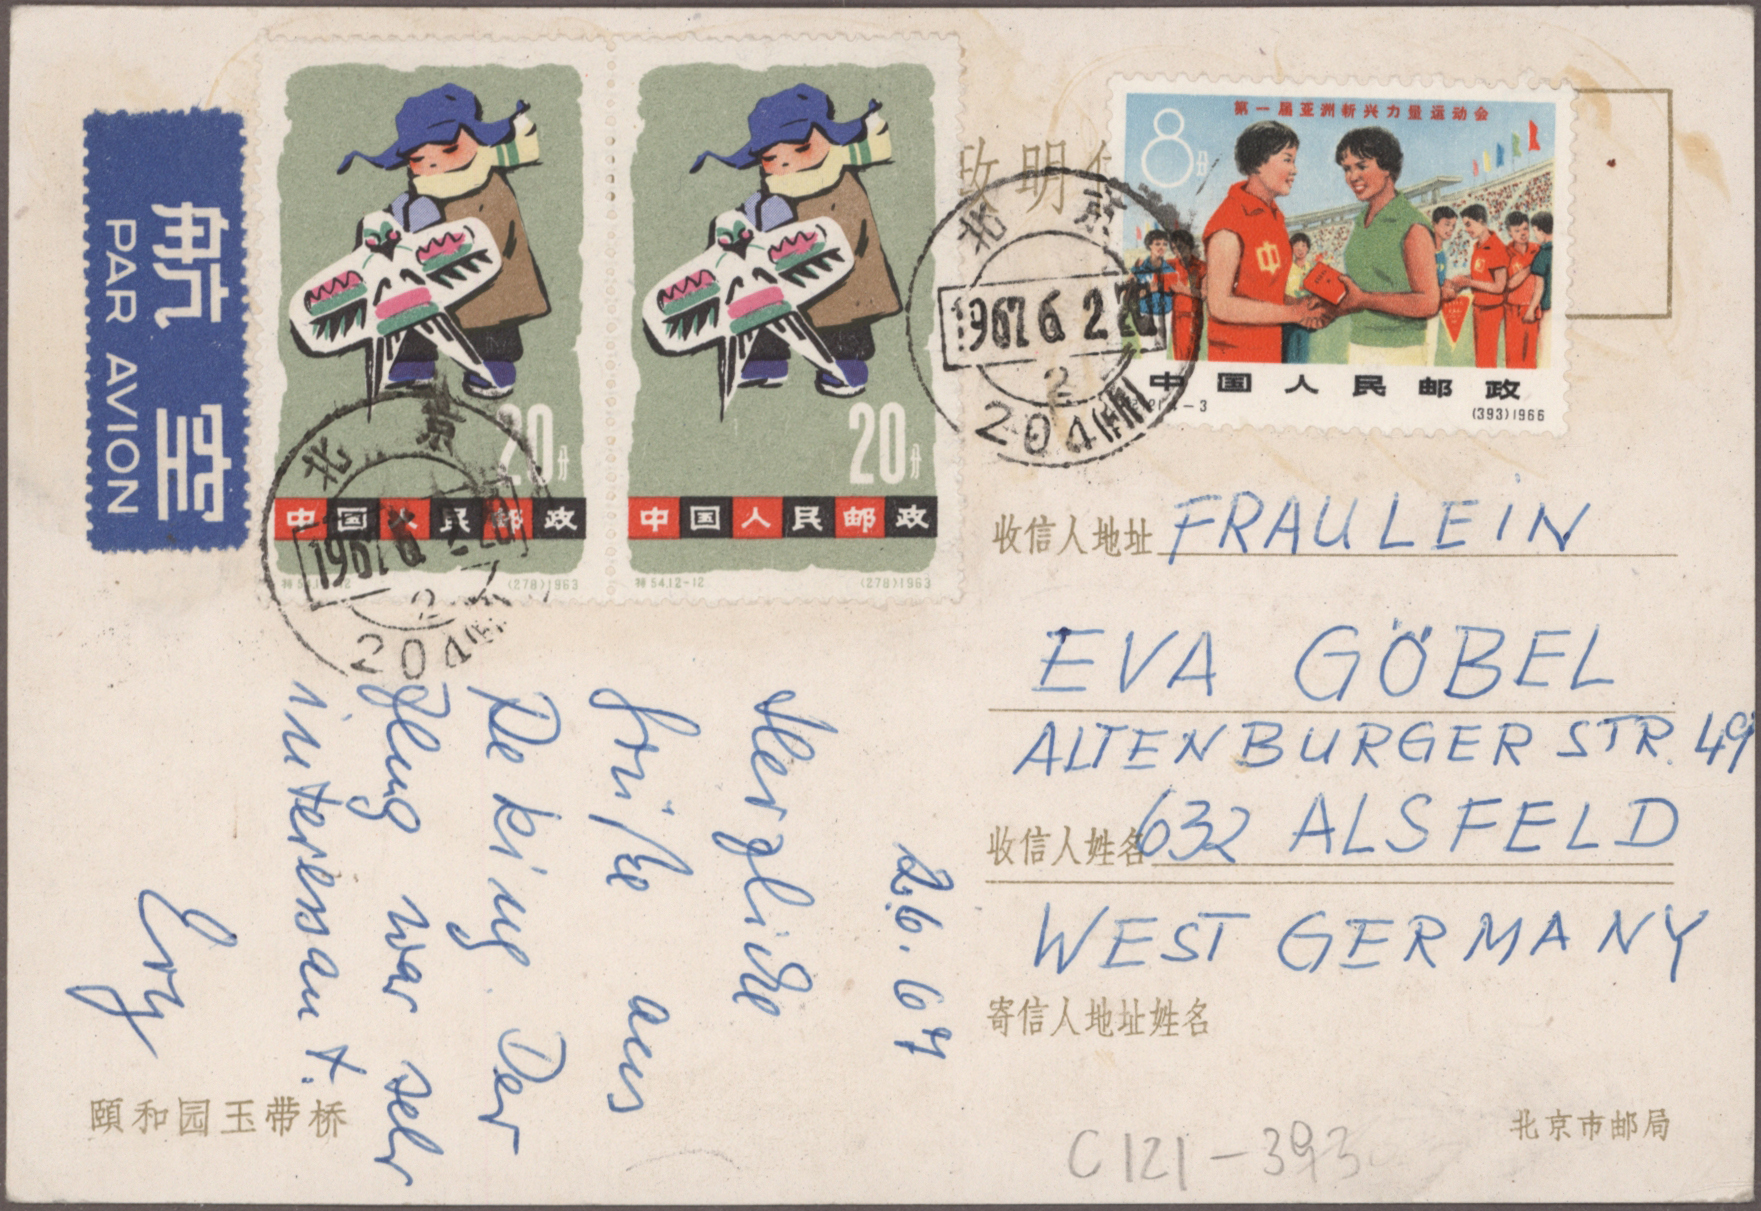 航空
PAR AVION
20分
中国人民邮政
特54.12-12
(278)1963
20分
中国人民邮政
特54.12-12
(278)1963
明信
第一届亚洲新兴力量运动会
8分
中国人民邮政
(393)1966
北京
1967.6.2.20
2
204(支)
北京
1967.6.2.20
2
204
收信人地址 FRAULEIN
EVA GÖBEL
ALTENBURGER STR. 49
收信人姓名 632 ALSFELD
WEST GERMANY
寄信人地址姓名
2.6.67
Herzliche
Grüße aus
Peking. Der
Flug war sehr
interessant.
颐和园玉带桥
北京市邮局
C121-393